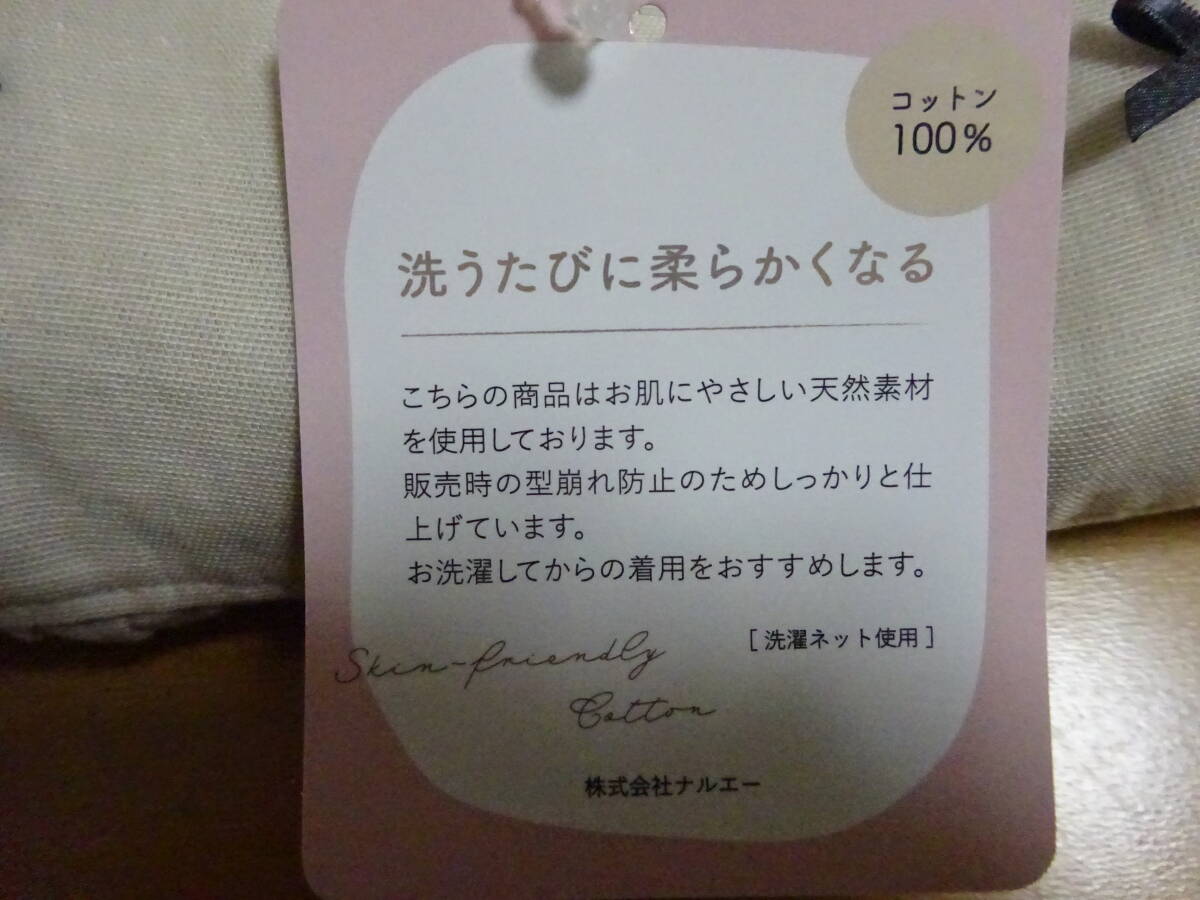 コットン
100%
洗うたびに柔らかくなる
こちらの商品はお肌にやさしい天然素材
を使用しております。
販売時の型崩れ防止のためしっかりと仕
上げています。
お洗濯してからの着用をおすすめします。
[ 洗濯ネット使用 ]
Skin-friendly
Cotton
株式会社ナルエー